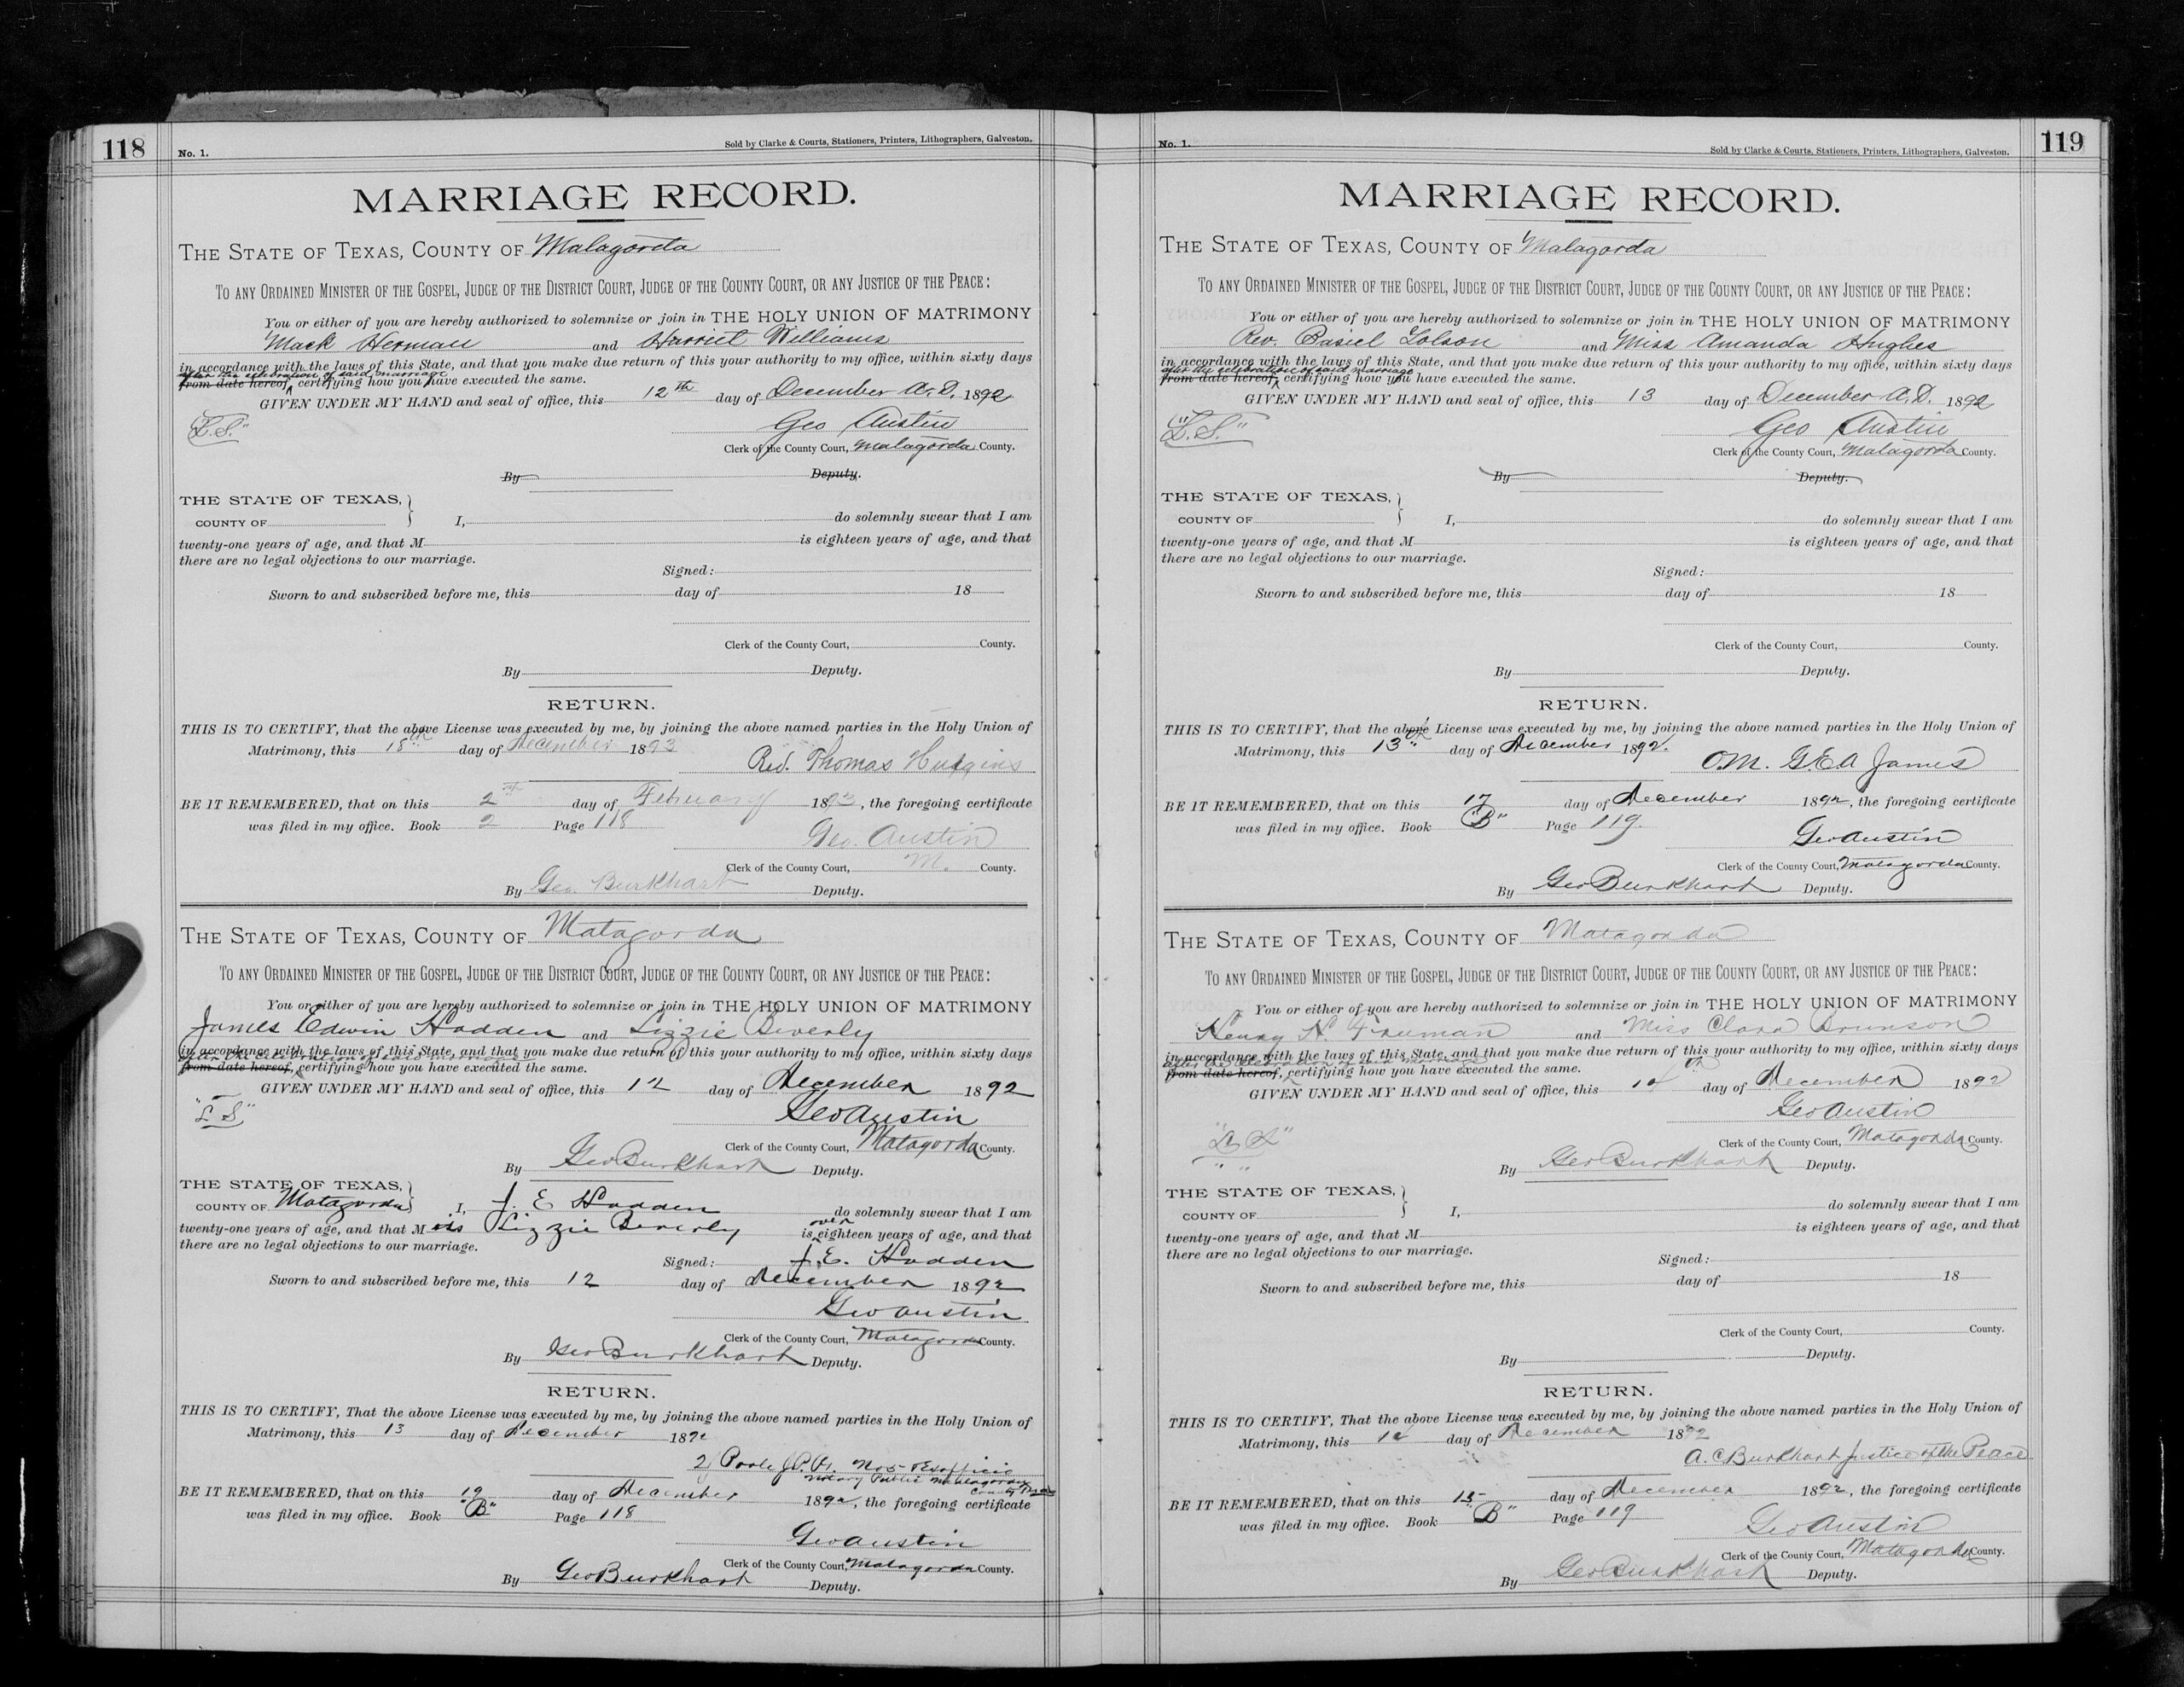 118
No. 1.
Sold by Clarke & Courts, Stationers, Printers, Lithographers, Galveston.
MARRIAGE RECORD.
THE STATE OF TEXAS, COUNTY OF Matagorda
TO ANY ORDAINED MINISTER OF THE GOSPEL, JUDGE OF THE DISTRICT COURT, JUDGE OF THE COUNTY COURT, OR ANY JUSTICE OF THE PEACE:
You or either of you are hereby authorized to solemnize or join in THE HOLY UNION OF MATRIMONY
Mack Herman and Harriet Williams
in accordance with the laws of this State, and that you make due return of this your authority to my office, within sixty days
after the celebration of said marriage
from date hereof, certifying how you have executed the same.
GIVEN UNDER MY HAND and seal of office, this 12th day of December A.D. 1892
"L.S." Geo Austin
Clerk of the County Court, Matagorda County.
By Deputy.
THE STATE OF TEXAS,
COUNTY OF I, do solemnly swear that I am
twenty-one years of age, and that M is eighteen years of age, and that
there are no legal objections to our marriage.
Signed:
Sworn to and subscribed before me, this day of 18
Clerk of the County Court, County.
By Deputy.
RETURN.
THIS IS TO CERTIFY, that the above License was executed by me, by joining the above named parties in the Holy Union of
Matrimony, this 15th day of December 1893
Rev. Thomas Hudgins
BE IT REMEMBERED, that on this 2nd day of February 1893, the foregoing certificate
was filed in my office. Book 2 Page 118
Geo. Austin
Clerk of the County Court, M. County.
By Geo. Burkhart Deputy.
THE STATE OF TEXAS, COUNTY OF Matagorda
TO ANY ORDAINED MINISTER OF THE GOSPEL, JUDGE OF THE DISTRICT COURT, JUDGE OF THE COUNTY COURT, OR ANY JUSTICE OF THE PEACE:
You or either of you are hereby authorized to solemnize or join in THE HOLY UNION OF MATRIMONY
James Edwin Hadden and Lizzie Beverly
in accordance with the laws of this State, and that you make due return of this your authority to my office, within sixty days
after the celebration of said marriage
from date hereof, certifying how you have executed the same.
GIVEN UNDER MY HAND and seal of office, this 12 day of December 1892
"L S" Geo Austin
Clerk of the County Court, Matagorda County.
By Geo Burkhart Deputy.
THE STATE OF TEXAS,
COUNTY OF Matagorda I, J. E Hadden do solemnly swear that I am
twenty-one years of age, and that Mis Lizzie Beverly is over eighteen years of age, and that
there are no legal objections to our marriage.
Signed: J. E. Hadden
Sworn to and subscribed before me, this 12 day of December 1892
Geo Austin
Clerk of the County Court, Matagorda County.
By Geo Burkhart Deputy.
RETURN.
THIS IS TO CERTIFY, That the above License was executed by me, by joining the above named parties in the Holy Union of
Matrimony, this 13 day of December 1892
Poole J.P. Pr. No 5 Exofficio
Notary Public Matagorda
County Texas
BE IT REMEMBERED, that on this 19 day of December 1892, the foregoing certificate
was filed in my office. Book "B" Page 118
Geo Austin
Clerk of the County Court, Matagorda County.
By Geo Burkhart Deputy.
119
No. 1.
Sold by Clarke & Courts, Stationers, Printers, Lithographers, Galveston.
MARRIAGE RECORD.
THE STATE OF TEXAS, COUNTY OF Matagorda
TO ANY ORDAINED MINISTER OF THE GOSPEL, JUDGE OF THE DISTRICT COURT, JUDGE OF THE COUNTY COURT, OR ANY JUSTICE OF THE PEACE:
You or either of you are hereby authorized to solemnize or join in THE HOLY UNION OF MATRIMONY
Rev. Basiel Tolson and Miss Amanda Hughes
in accordance with the laws of this State, and that you make due return of this your authority to my office, within sixty days
after the celebration of said marriage
from date hereof, certifying how you have executed the same.
GIVEN UNDER MY HAND and seal of office, this 13 day of December A.D. 1892
"L.S." Geo Austin
Clerk of the County Court, Matagorda County.
By Deputy.
THE STATE OF TEXAS,
COUNTY OF I, do solemnly swear that I am
twenty-one years of age, and that M is eighteen years of age, and that
there are no legal objections to our marriage.
Signed:
Sworn to and subscribed before me, this day of 18
Clerk of the County Court, County.
By Deputy.
RETURN.
THIS IS TO CERTIFY, that the above License was executed by me, by joining the above named parties in the Holy Union of
Matrimony, this 13th day of December 1892.
O.M. G.E.A James
BE IT REMEMBERED, that on this 17 day of December 1892, the foregoing certificate
was filed in my office. Book "B" Page 119.
Geo Austin
Clerk of the County Court, Matagorda County.
By Geo Burkhart Deputy.
THE STATE OF TEXAS, COUNTY OF Matagorda
TO ANY ORDAINED MINISTER OF THE GOSPEL, JUDGE OF THE DISTRICT COURT, JUDGE OF THE COUNTY COURT, OR ANY JUSTICE OF THE PEACE:
You or either of you are hereby authorized to solemnize or join in THE HOLY UNION OF MATRIMONY
Henry N. Truman and Miss Clara Brunson
in accordance with the laws of this State, and that you make due return of this your authority to my office, within sixty days
after the celebration of said marriage
from date hereof, certifying how you have executed the same.
GIVEN UNDER MY HAND and seal of office, this 14th day of December 1892
Geo Austin
Clerk of the County Court, Matagorda County.
By Geo Burkhart Deputy.
THE STATE OF TEXAS,
COUNTY OF I, do solemnly swear that I am
twenty-one years of age, and that M is eighteen years of age, and that
there are no legal objections to our marriage.
Signed:
Sworn to and subscribed before me, this day of 18
Clerk of the County Court, County.
By Deputy.
RETURN.
THIS IS TO CERTIFY, That the above License was executed by me, by joining the above named parties in the Holy Union of
Matrimony, this 14 day of December 1892
A. C Burkhart Justice of the Peace
BE IT REMEMBERED, that on this 15 day of December 1892, the foregoing certificate
was filed in my office. Book "B" Page 119
Geo Austin
Clerk of the County Court, Matagorda County.
By Geo Burkhart Deputy.